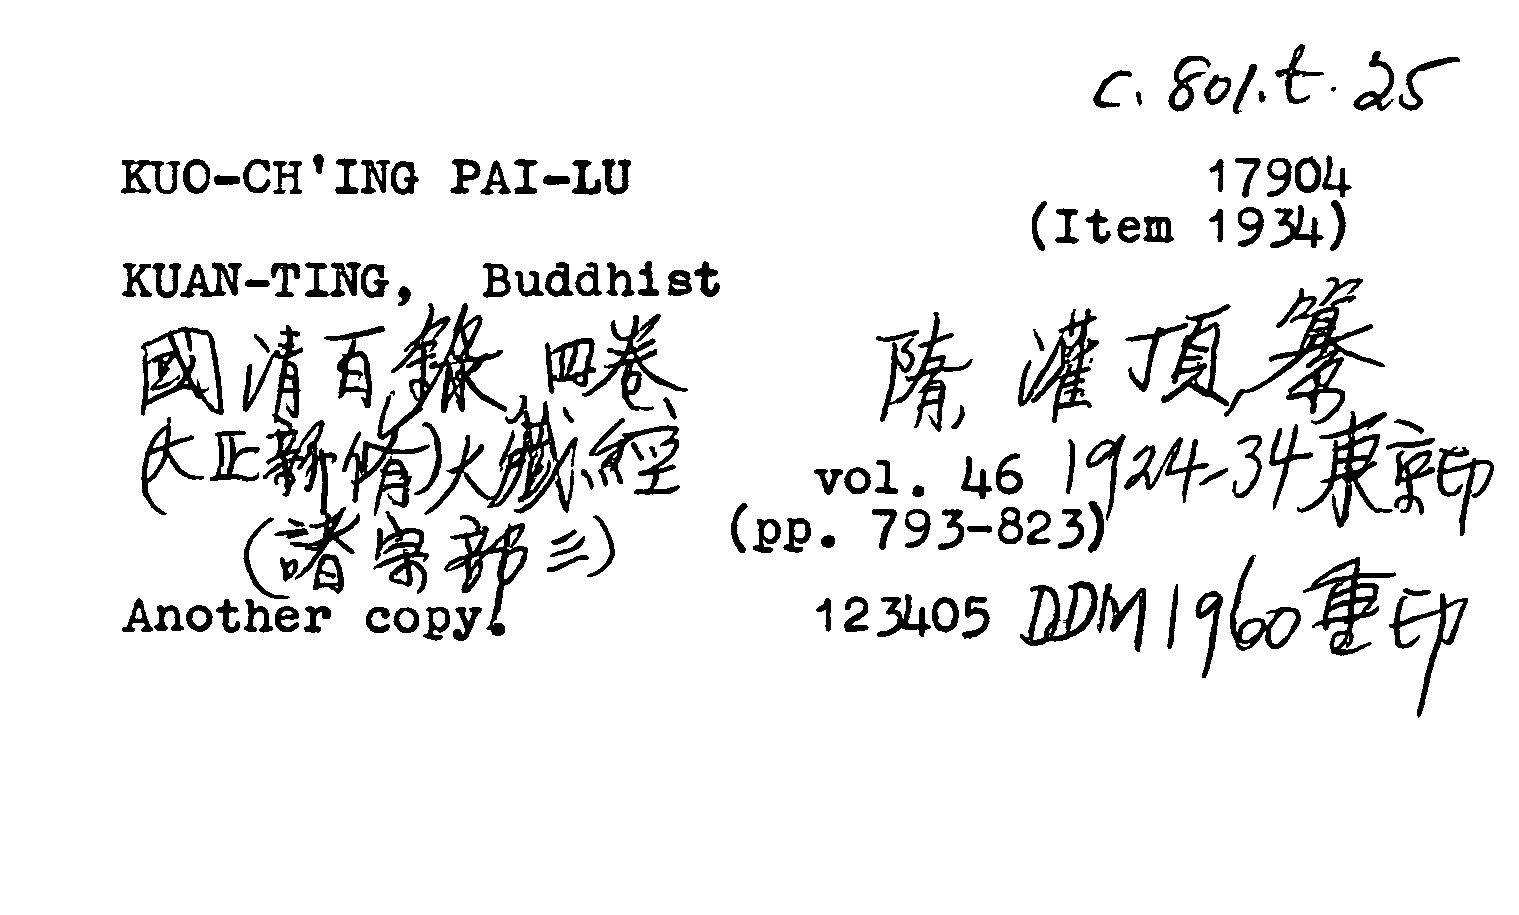 c. 801.t.25
KUO-CH'ING PAI-LU 17904
(Item 1934)
KUAN-TING, Buddhist
國清百錄 四卷 隋 灌頂纂
(大正新脩)大藏經 vol. 46 1924-34東京印
(諸宗部三) (pp. 793-823)
Another copy. 123405 DDM 1960重印